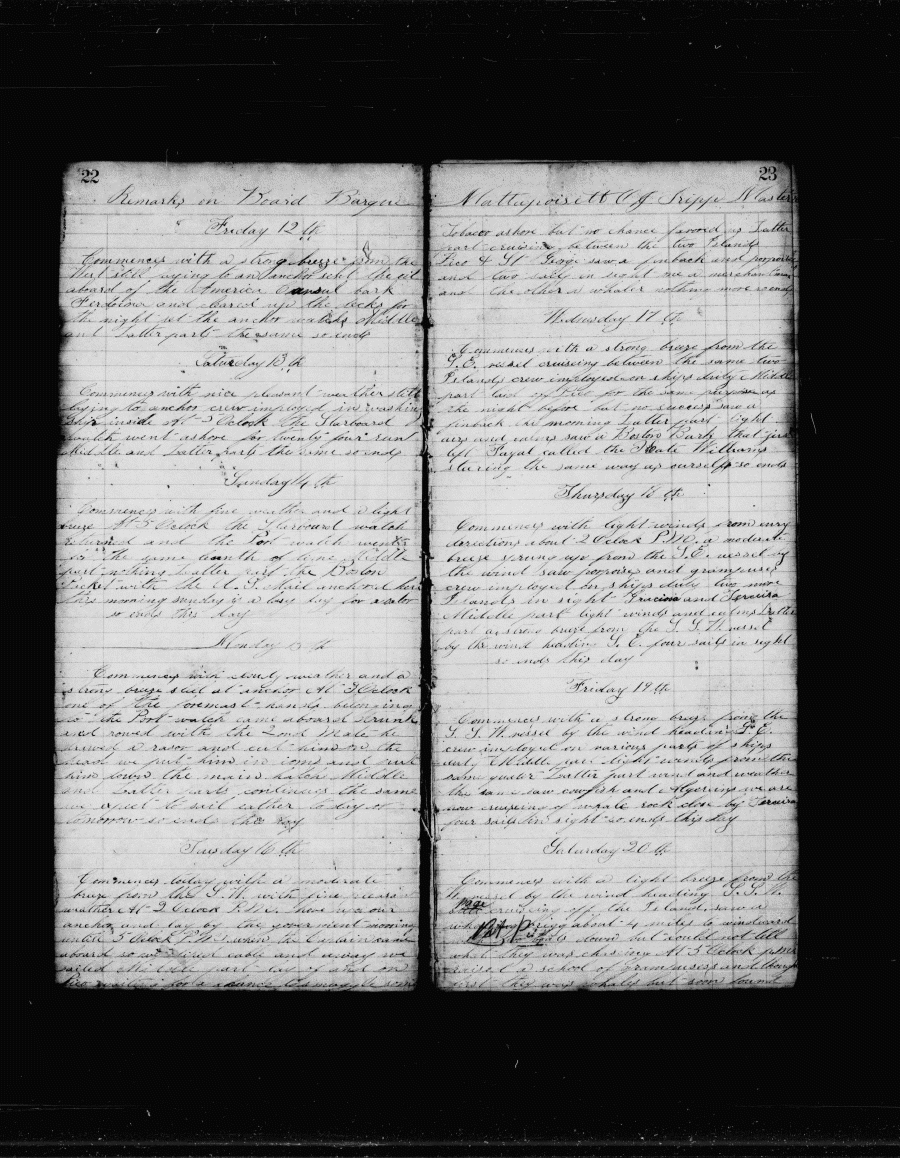 22
Remarks on Board Barque
Friday 12th
Commences with a strong breeze from the
West still laying to an anchor sent the oil
aboard of the America bark
and cleared up the decks for
the night set the anchor watch Middle
and Latter parts the same so ends
Saturday 13th
Commences with nice pleasant weather still
laying to anchor crew imployed in washing
ship inside At 3 Oclock the Starboard
watch went ashore for twenty four
Middle and Latter parts the same so ends
Sunday 14th
Commences with fine weather and a light
breze At 5 Oclock the Starboard watch
returned and the Port watch went
for the same lenth of time Middle
part nothing Latter part the Boston
Packet with the U.S. Mail anchored here
this morning sunday is a day for
so ends this day
Monday 15th
Commences with cloudy weather and a
strong breeze still at anchor At 3 Oclock
one of the foremast hands belonging
to the Port watch came aboard drunk
and rowed with the 2ond Mate he
drawed a rasor and cut him on the
head we put him in irons and put
him down the main hatch Middle
and Latter parts continues the same
we expect to sail eather to day or
tomorrow so ends the day
Tuesday 16th
Commences today with a moderate
breze from the S.W. with fine
weather At 2 Oclock P.M. hove up our
anchor and lay by the goverment mooring
untill 5 Oclock P.M. when the Captain came
aboard so we cable and away we
sailed Middle part lay of and on
Pico waiting for a chance to smuggle some
23
Mattapoisett O J Tripp Master
Tobacco ashore but no chance favord us Latter
part cruising between the two Islands
Pico & St George saw a finback and porpoises
and two sails in sight one a merchantman
and the other a whaler nothing more so ends
Wednesday 17th
Commences with a strong breze from the
S.E. vessel cruiseing between the same two
Islands crew employed on ships duty Middle
part laid for the same purpose as
the night before but no success saw a
finback this morning Latter part light
airs and calms saw a Boston Bark that just
left Fayal called the Kate Williams
stearing the same way as ourselfs so ends
Thursday 18th
Commences with light winds from evry
derections about 2 Oclock P.M. a moderate
breeze sprung up from the S.E. vessel by
the wind saw porpoises and grampuses
crew imployed on ships duty two more
Islands in sight Graciosa and Terceira
Middle part light winds and calms Latter
part a strong breze from the S.S.W. vessel
by the wind heading S.E. four sails in sight
so ends this day
Friday 19th
Commences with a strong breze from the
S.S.W. vessel by the wind heading S.E.
crew imployed on various parts of ships
duty Middle part light winds from the
same quater Latter part wind and weather
the same saw cowfish and Algerines we are
now cruising of whale rock close by Terceira
four sails in sight so ends this day
Saturday 20th
Commences with a light breze from the
W. vessel by the wind heading S.S.W.
cruiseing off the Island saw a
about 4 miles to windward
down but could not tell
what they was chasing At 3 Oclock p.m.
raised a school of Grampuses and thought
first they was whales but soon found